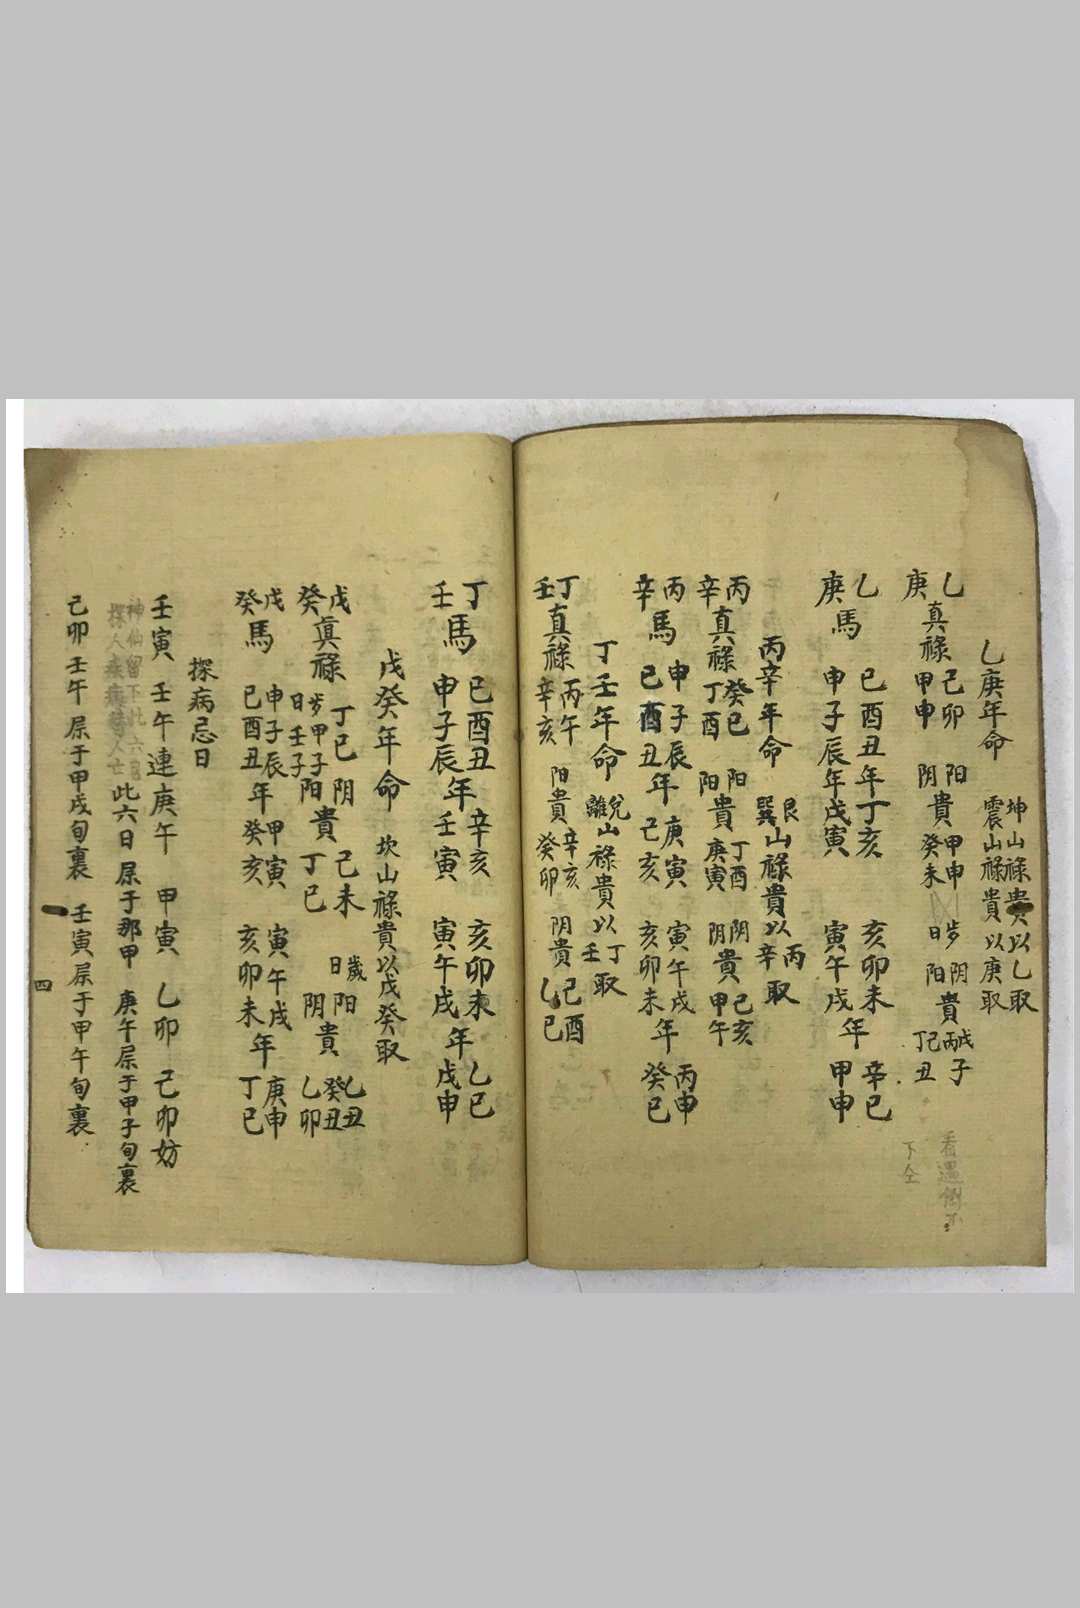 乙庚年命 坤山祿貴以乙取 震山祿貴以庚取
乙庚真祿 己卯 甲申 阳阴貴 甲申 癸未 岁日 阴阳貴 戊子 丙子 己丑 丁丑
看過倒
下仝
乙庚馬 巳酉丑年丁亥 亥卯未年辛巳
申子辰年戊寅 寅午戌年甲申
丙辛年命 艮山祿貴以丙取 巽山祿貴以辛取
丙辛真祿 癸巳 丁酉 阳阳貴 丁酉 庚寅 阴阴貴 己亥 甲午
丙辛馬 申子辰年庚寅 寅午戌年丙申
巳酉丑年己亥 亥卯未年癸巳
丁壬年命 兌山祿貴以丁取 離山祿貴以壬取
丁壬真祿 丙午 辛亥 阳貴 辛亥 癸卯 阴貴 己酉 乙巳
丁壬馬 巳酉丑年辛亥 亥卯未年乙巳
申子辰年壬寅 寅午戌年戊申
戊癸年命 坎山祿貴以戊癸取
戊癸真祿 丁巳 岁甲子 日壬子 阴阳貴 己未 丁巳 歲日阳阴貴 乙丑 癸丑 乙卯
戊癸馬 申子辰年甲寅 寅午戌年庚申
巳酉丑年癸亥 亥卯未年丁巳
探病忌日
壬寅 壬午連庚午 甲寅 乙卯 己卯妨
神仙留下此六日
探人疾病替人亡此六日 屌于那甲 庚午屌于甲子旬裏
己卯壬午屌于甲戌旬裏 壬寅屌于甲午旬裏
四